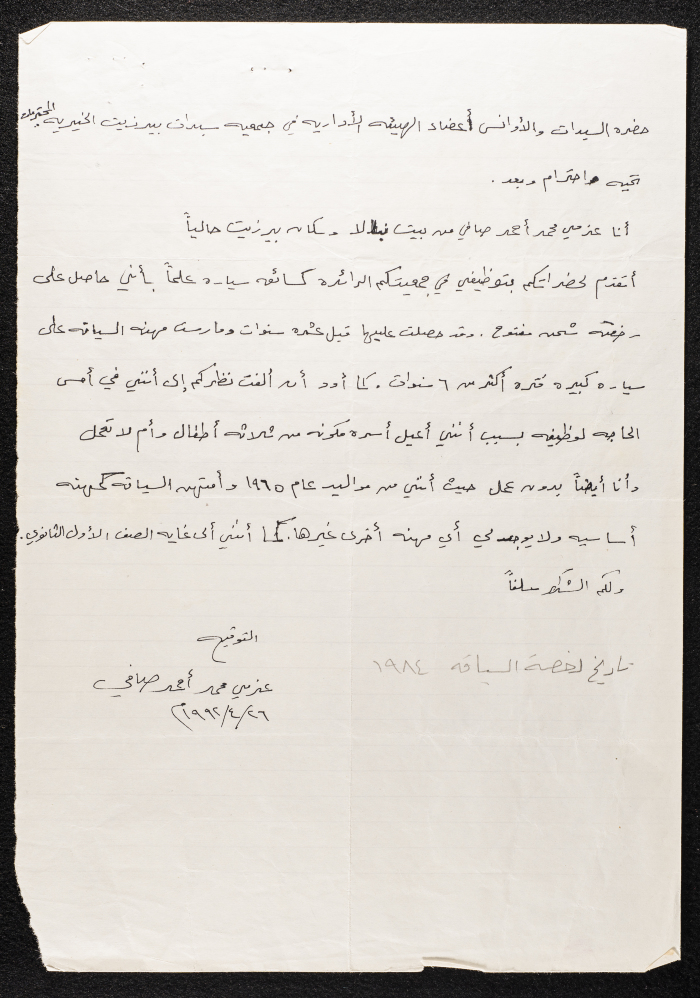 حضره السيدات والأوانس أعضاء الهيئه الأداريه في جمعيه سيدات بيرزيت الخيريه المحترمين
تحيه واحترام وبعد .
أنا عزمي محمد أحمد صافي من بيت نبالا وسكان بيرزيت حالياً
أتقدم لحضراتكم بتوظيفي في جمعيتكم الرائده كسائق سياره علماً بأنني حاصل على
رخصة شحن مفتوح . وقد حصلت عليها قبل عشره سنوات ومارست مهنه السياقه على
سياره كبيره فتره أكثر من ٦ سنوات . كما أود أن ألفت نظركم إلى أنني في أمس
الحاجه لوظيفه بسبب أنني أعيل أسره مكونه من ثلاثه أطفال وأم لا تعمل
وأنا أيضاً بدون عمل حيث أنني من مواليد عام ١٩٦٥ وأمتهن السياقة كمهنه
أساسيه ولا يوجد لي أي مهنه أخرى غيرها. كما أنني ألى غايه الصف الأول الثانوي.
ولكم الشكر سلفاً
التوقيع
تاريخ رخصة السياقه ١٩٨٤
عزمي محمد أحمد صافي
٢٦/٤/١٩٩٢م